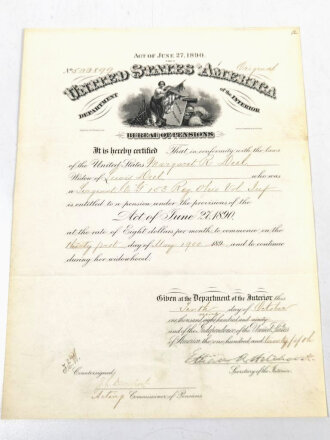 Act of June 27, 1890.
Original
United States of America
Department of the Interior
Bureau of Pensions
It is hereby certified That in conformity with the laws
of the United States Margaret R.
Widow of Lewis who was
a Sergeant Co. G 153 Reg. Ohio Vol. Inf
is entitled to a pension under the provisions of the
Act of June 27, 1890,
at the rate of Eight dollars per month to commence on the
thirty first day of May 1900 and to continue
during her widowhood.
Given at the Department of the Interior this
Tenth day of October
one thousand eight hundred and ninety
and of the Independence of the United States
of America the one hundred and twenty fifth
Ethan A. Hitchcock
Secretary of the Interior.
Countersigned,
Acting Commissioner of Pensions